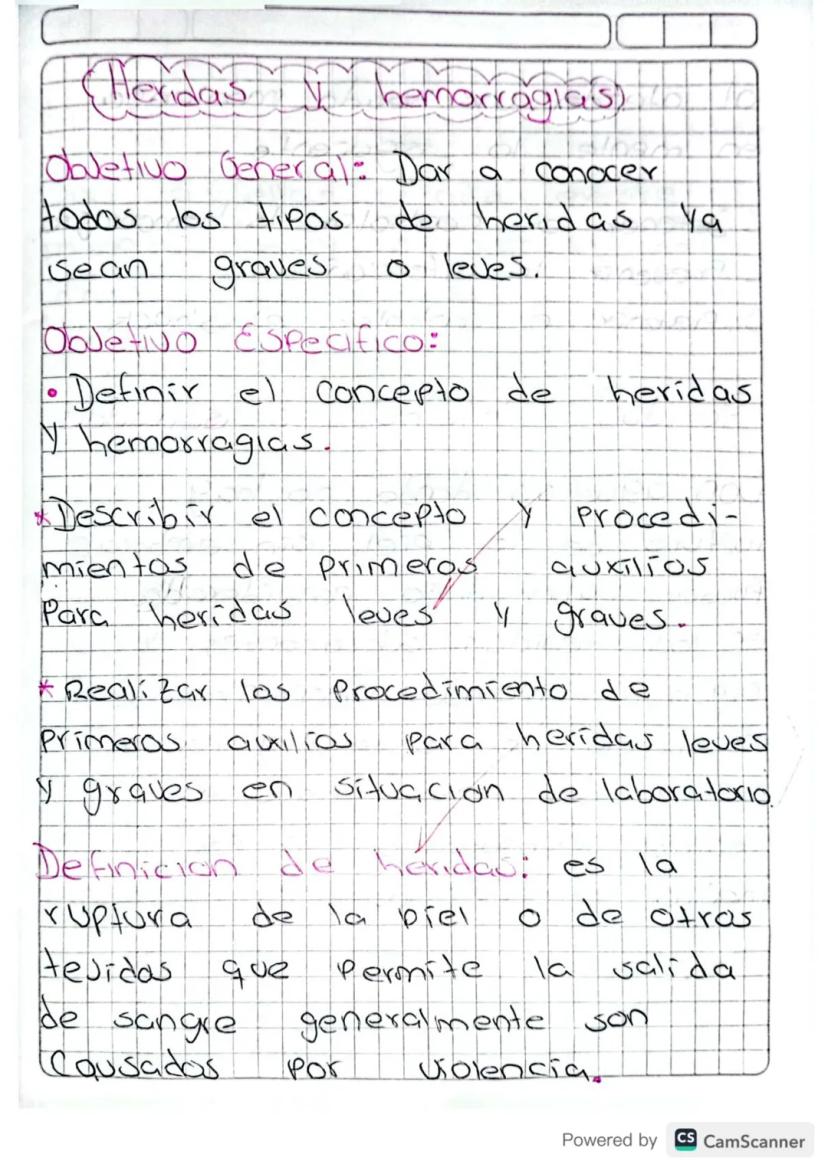 (Heridas y hemorragias)
Objetivo General: Dar a conocer
todos los tipos de heridas ya
sean graves o leves.
Objetivo Especifico:
• Definir el concepto de heridas
y hemorragias.
* Describir el concepto y procedi-
mientos de primeros auxilios
para heridas leves y graves.
* Realizar las procedimiento de
primeros auxilios para heridas leves
y graves en situacion de laboratorio.
Definicion de heridas: es la
ruptura de la piel o de otras
tejidas que permite la salida
de sangre generalmente son
causados por violencia.
Powered by CS CamScanner